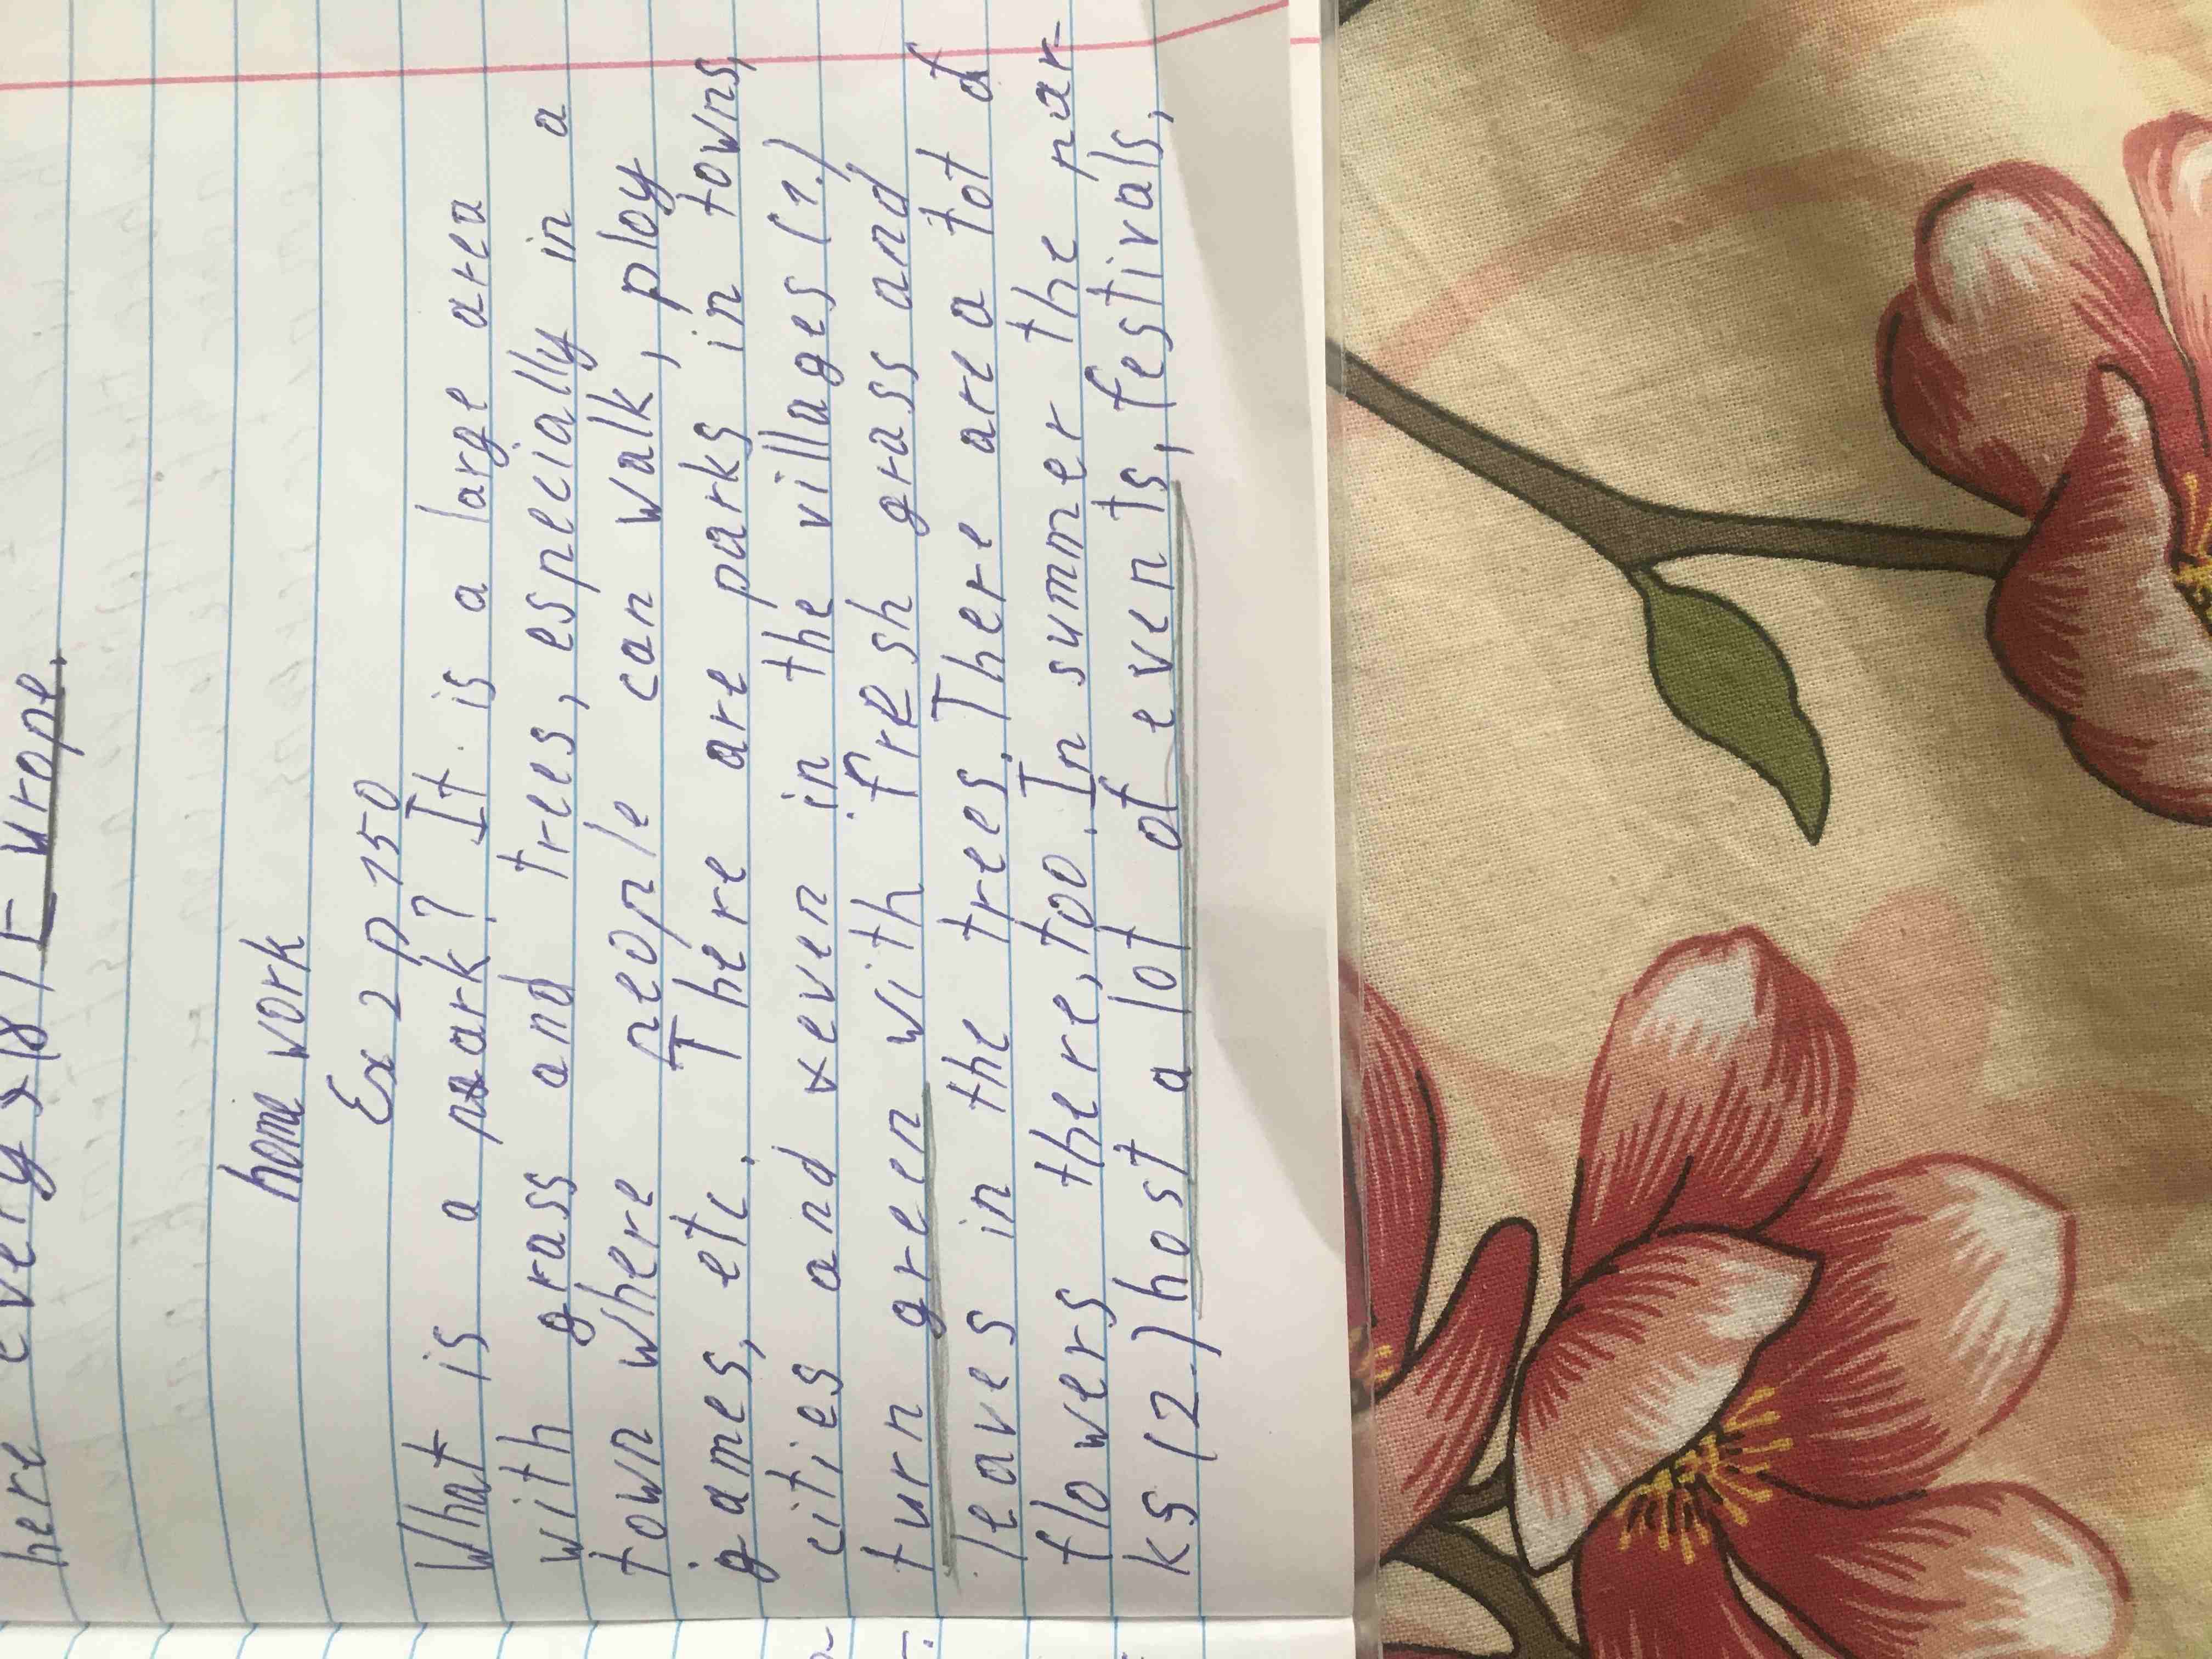 here every Europe.
home work
Ex 2 p 150
What is a park? It is a large area
with grass and trees, especially in a
town where people can walk, ploy
games, etc. There are parks in towns,
cities and even in the villages (1.)
turn green with fresh grass and
leaves in the trees. There are a tot of
flowers there, too. In summer the par-
ks (2.) host a lot of events, festivals,